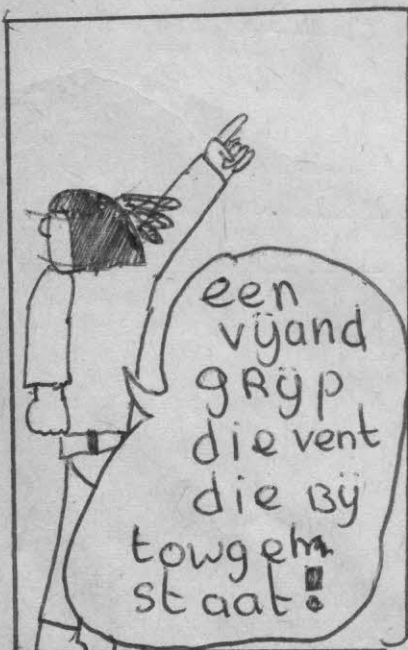 een
vijand
gRijp
die vent
die Bij
towgem
staat!